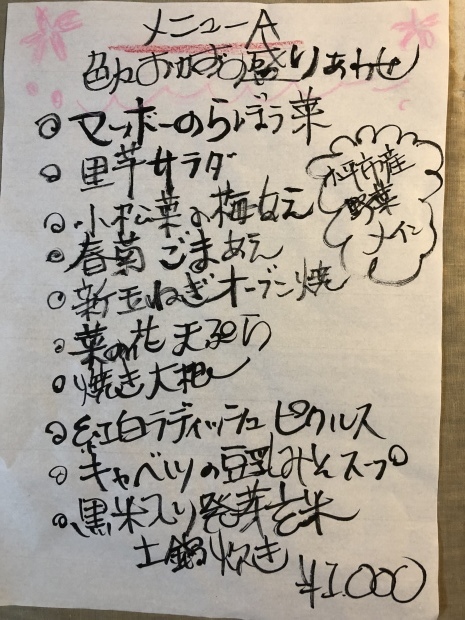 メニューA
色々おかず盛りあわせ
◎マーボーのらぼう菜
○里芋サラダ
○小松菜の梅あえ
○春菊ごまあえ
○新玉ねぎオーブン焼
○菜の花天ぷら
○焼き大根
○紅白ラディッシュピクルス
○キャベツの豆乳みそスープ
○黒米入り発芽玄米
土鍋炊き
¥1.000
小平市産
野菜
メイン